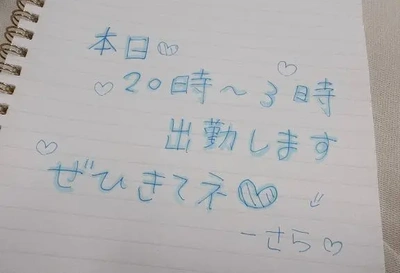 本日♡
♡20時~3時
出勤します
ぜひきてネ♡
ーさら♡